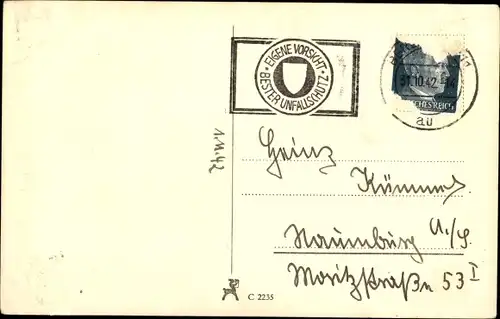 EIGENE VORSICHT
BESTER UNFALLSCHUTZ
31.10.42
au
DEUTSCHES REICH
1.11.42
Heinz
Kümmel
Naumburg a./S.
Moritzstraße 53 I
C 2235